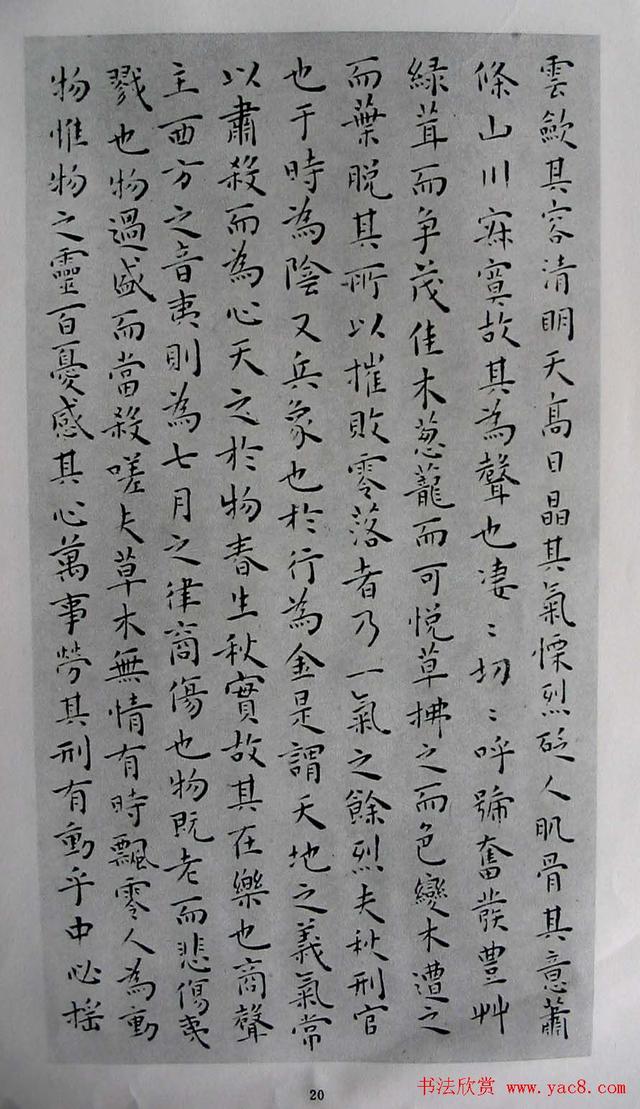 雲歛其容清明天高日晶其氣慄烈砭人肌骨其意蕭
條山川寂寞故其為聲也凄〻切〻呼號奮發豐艸
緑茸而爭茂佳木蔥蘢而可悅草拂之而色變木遭之
而葉脫其所以摧敗零落者乃一氣之餘烈夫秋刑官
也于時為陰又兵象也於行為金是謂天地之義氣常
以肅殺而為心天之於物春生秋實故其在樂也商聲
主西方之音夷則為七月之律商傷也物既老而悲傷夷
戮也物過盛而當殺嗟夫草木無情有時飄零人為動
物惟物之靈百憂感其心萬事勞其形有動乎中必搖
20
书法欣赏 www.yac8.com